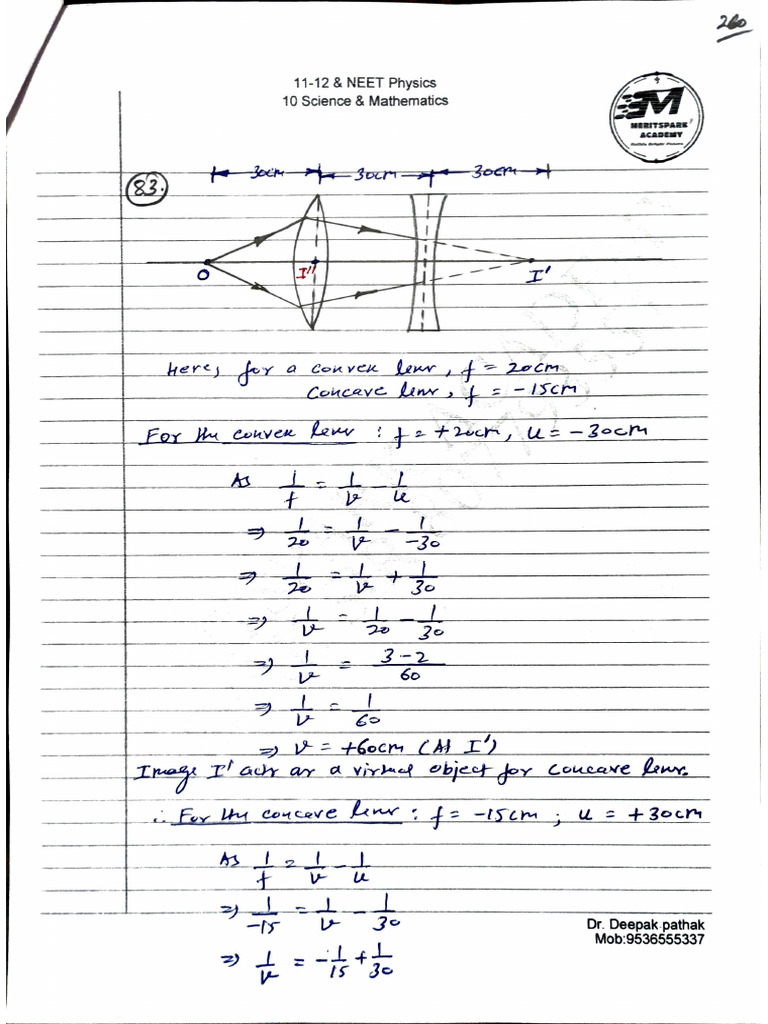 260
11-12 & NEET Physics
10 Science & Mathematics
MERITSPARK
ACADEMY
83.
30cm 30cm 30cm
O I" I'
Here, for a convex lens, f = 20cm
Concave lens, f = -15cm
For the convex lens : f = +20cm, u = -30cm
As 1/f = 1/v - 1/u
⇒ 1/20 = 1/v - 1/-30
⇒ 1/20 = 1/v + 1/30
⇒ 1/v = 1/20 - 1/30
⇒ 1/v = 3-2/60
⇒ 1/v = 1/60
⇒ v = +60cm (At I')
Image I' acts as a virtual object for concave lens.
∴ For the concave lens : f = -15cm ; u = +30cm
As 1/f = 1/v - 1/u
⇒ 1/-15 = 1/v - 1/30
⇒ 1/v = -1/15 + 1/30
Dr. Deepak pathak
Mob:9536555337